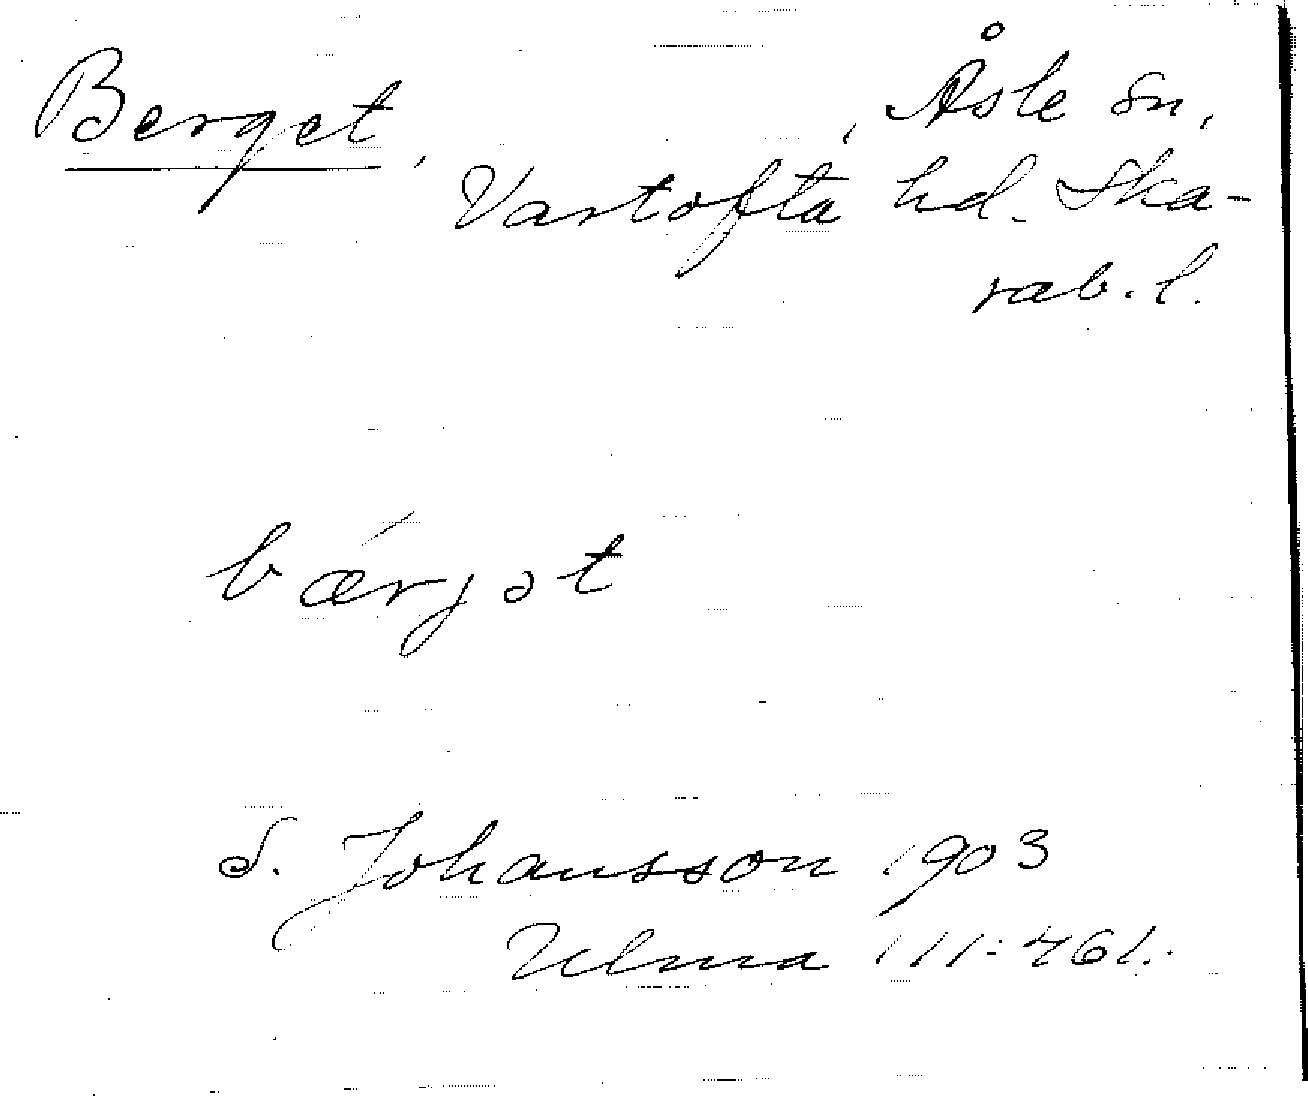 Berget, , Åsle sn,
Vartofta hd. Ska-
rab. l.
bǽrjət
S. Johansson 1903
Ulma 111:461.